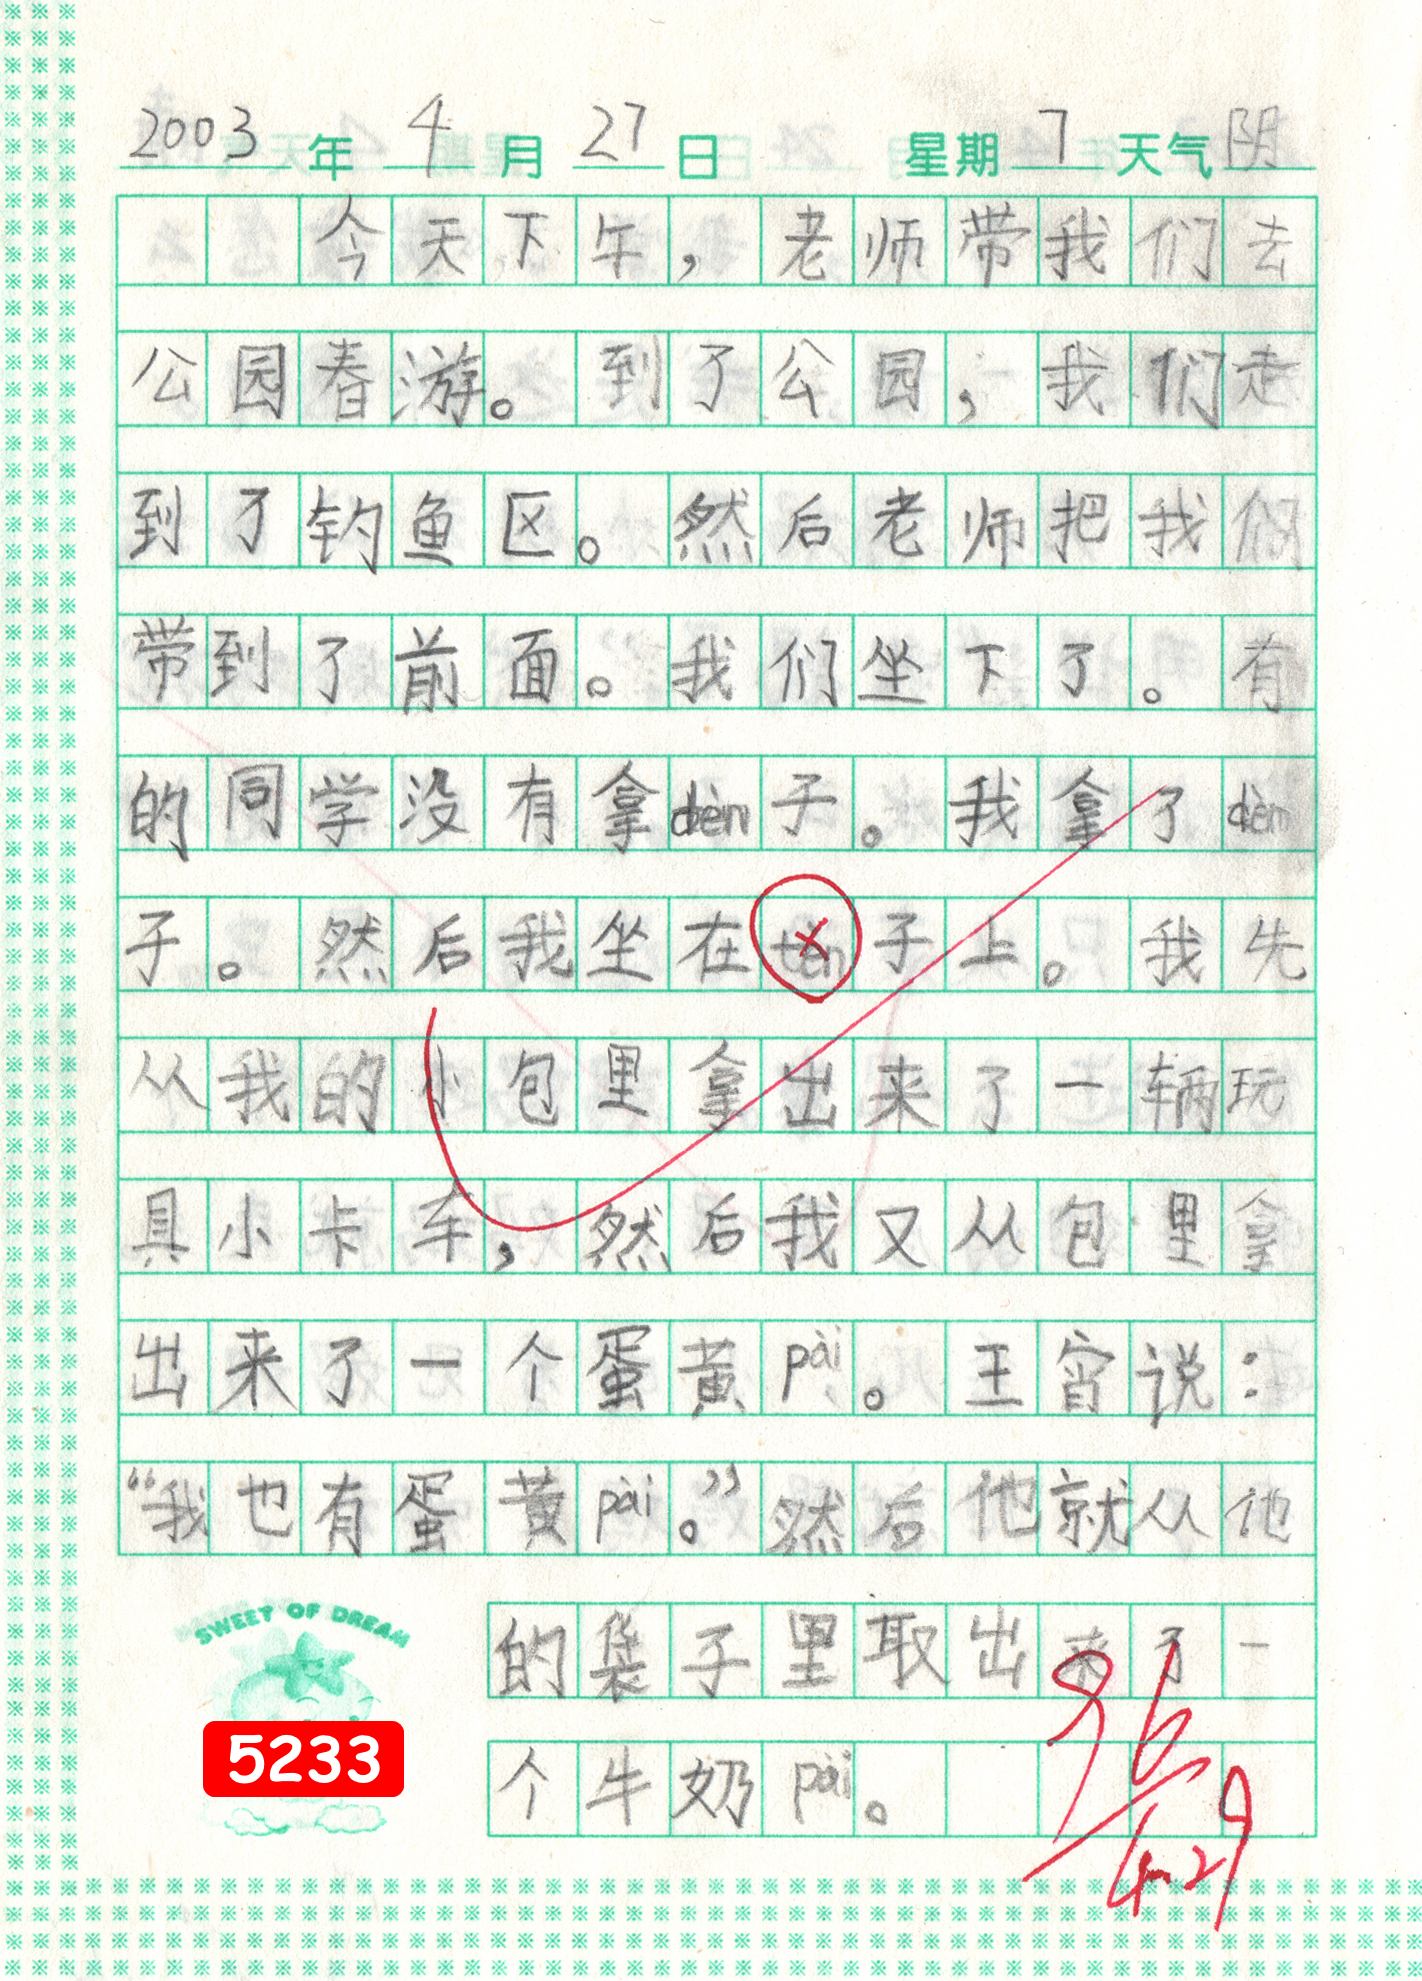 2003年4月27日 星期7天气阴
今天下午，老师带我们去
公园春游。到了公园，我们走
到了钓鱼区。然后老师把我们
带到了前面。我们坐下了。有
的同学没有拿dèn子。我拿了dèn
子。然后我坐在子上。我先
从我的小包里拿出来了一辆玩
具小卡车，然后我又从包里拿
出来了一个蛋黄pài。王宵说：
“我也有蛋黄pài。”然后他就从他
的袋子里取出来了一
个牛奶pài。
SWEET OF DREAM
5233
96
4.29